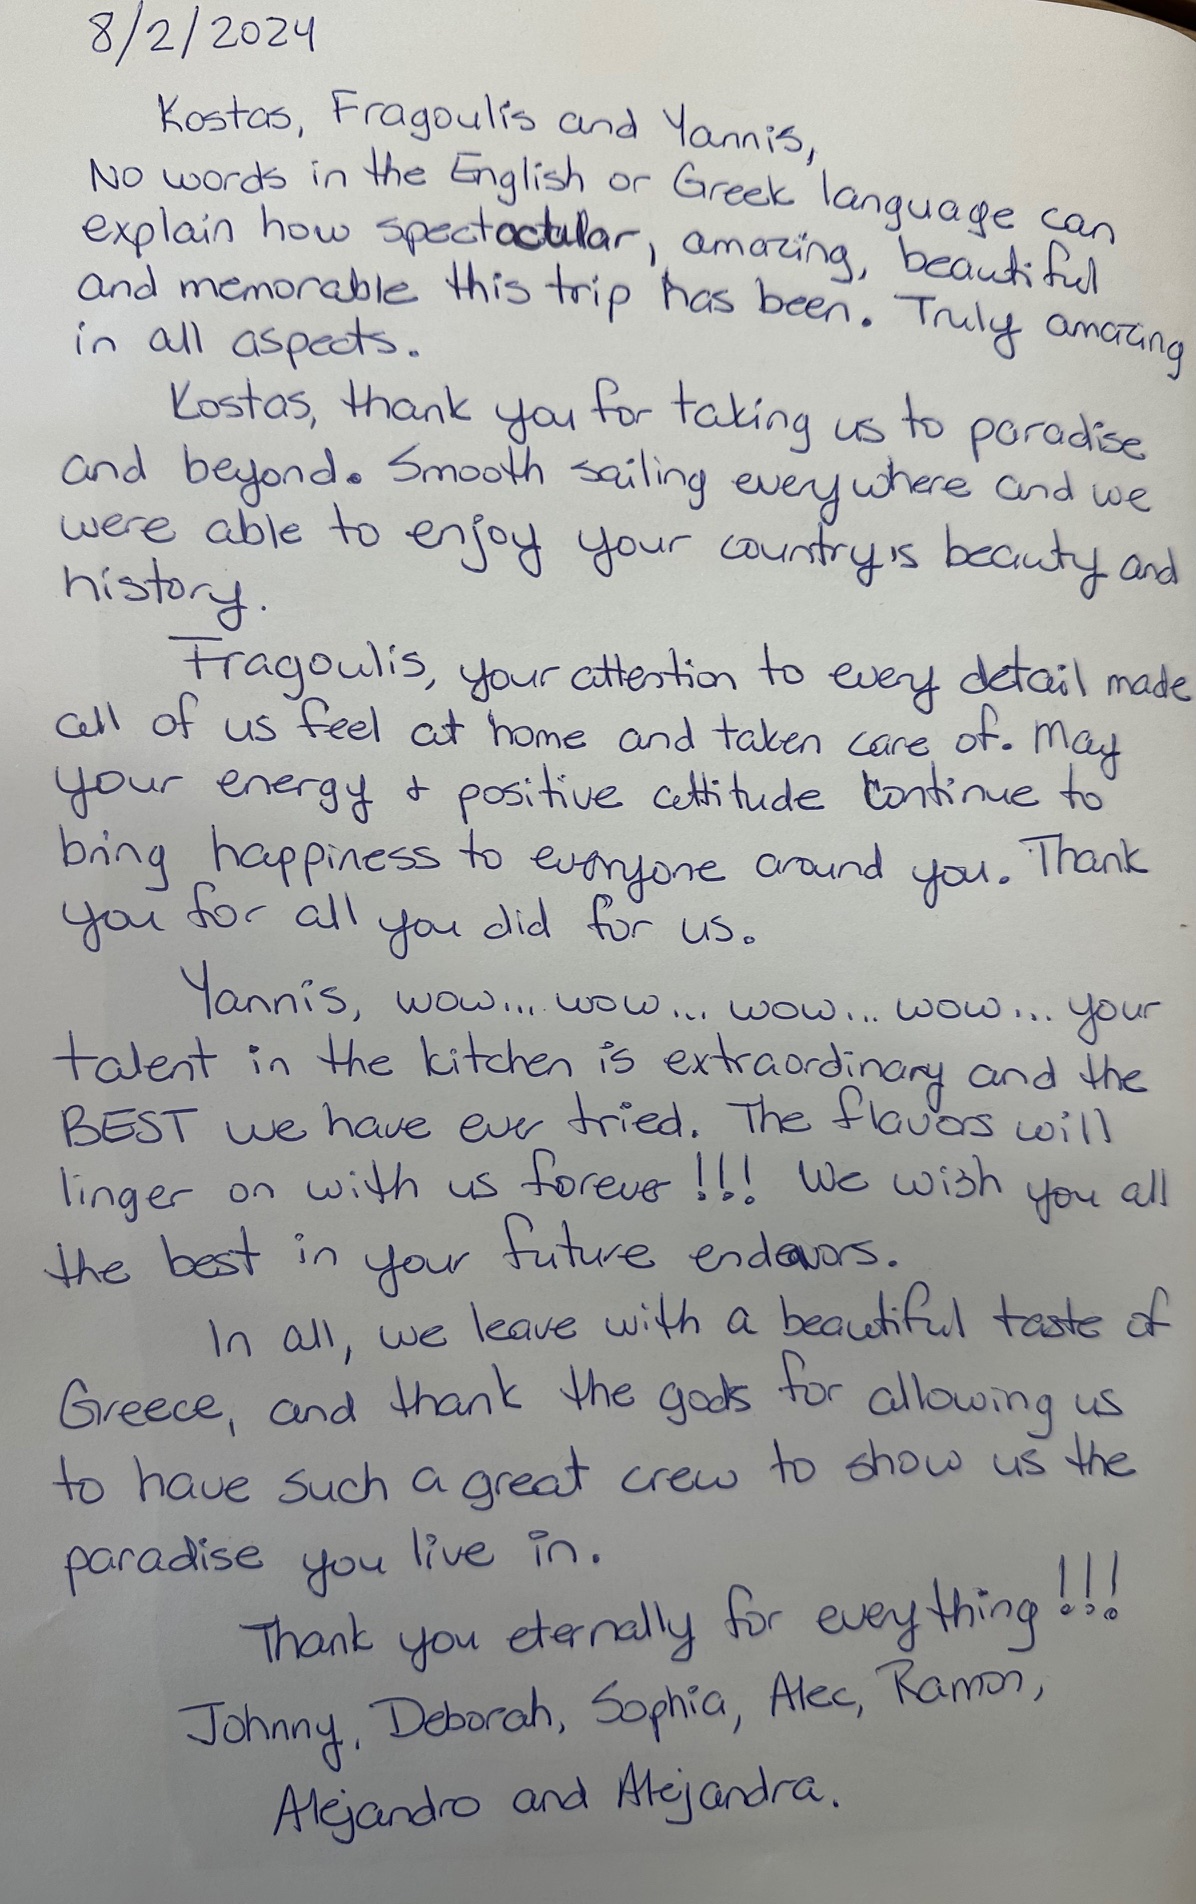 8/2/2024
Kostas, Fragoulis and Yannis,
No words in the English or Greek language can
explain how spectacular, amazing, beautiful
and memorable this trip has been. Truly amazing
in all aspects.
Kostas, thank you for taking us to paradise
and beyond. Smooth sailing everywhere and we
were able to enjoy your country's beauty and
history.
Fragoulis, your attention to every detail made
all of us feel at home and taken care of. May
your energy + positive attitude continue to
bring happiness to everyone around you. Thank
you for all you did for us.
Yannis, wow... wow... wow... wow... your
talent in the kitchen is extraordinary and the
BEST we have ever tried. The flavors will
linger on with us forever!!! We wish you all
the best in your future endeavors.
In all, we leave with a beautiful taste of
Greece, and thank the gods for allowing us
to have such a great crew to show us the
paradise you live in.
Thank you eternally for eveything!!!
Johnny, Deborah, Sophia, Alec, Ramon,
Alejandro and Alejandra.